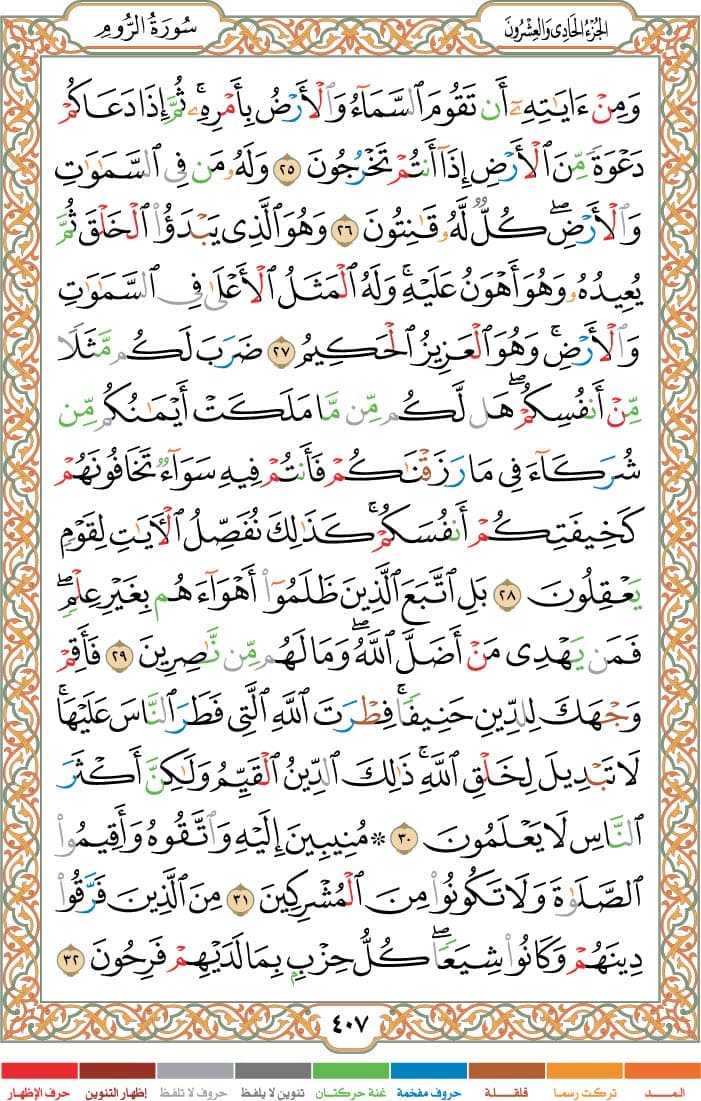 الجُزْءُ الحَادِى وَالعِشْرُونَ
سُورَةُ الرُّومِ
وَمِنْ ءَايَٰتِهِۦٓ أَن تَقُومَ ٱلسَّمَآءُ وَٱلْأَرْضُ بِأَمْرِهِۦ ۚ ثُمَّ إِذَا دَعَاكُمْ
دَعْوَةً مِّنَ ٱلْأَرْضِ إِذَآ أَنتُمْ تَخْرُجُونَ ٢٥ وَلَهُۥ مَن فِى ٱلسَّمَٰوَٰتِ
وَٱلْأَرْضِ ۖ كُلٌّ لَّهُۥ قَٰنِتُونَ ٢٦ وَهُوَ ٱلَّذِى يَبْدَؤُا۟ ٱلْخَلْقَ ثُمَّ
يُعِيدُهُۥ وَهُوَ أَهْوَنُ عَلَيْهِ ۚ وَلَهُ ٱلْمَثَلُ ٱلْأَعْلَىٰ فِى ٱلسَّمَٰوَٰتِ
وَٱلْأَرْضِ ۚ وَهُوَ ٱلْعَزِيزُ ٱلْحَكِيمُ ٢٧ ضَرَبَ لَكُم مَّثَلًا
مِّنْ أَنفُسِكُمْ ۖ هَل لَّكُم مِّن مَّا مَلَكَتْ أَيْمَٰنُكُم مِّن
شُرَكَآءَ فِى مَا رَزَقْنَٰكُمْ فَأَنتُمْ فِيهِ سَوَآءٌ تَخَافُونَهُمْ
كَخِيفَتِكُمْ أَنفُسَكُمْ ۚ كَذَٰلِكَ نُفَصِّلُ ٱلْءَايَٰتِ لِقَوْمٍ
يَعْقِلُونَ ٢٨ بَلِ ٱتَّبَعَ ٱلَّذِينَ ظَلَمُوٓا۟ أَهْوَآءَهُم بِغَيْرِ عِلْمٍ ۖ
فَمَن يَهْدِى مَنْ أَضَلَّ ٱللَّهُ ۖ وَمَا لَهُم مِّن نَّٰصِرِينَ ٢٩ فَأَقِمْ
وَجْهَكَ لِلدِّينِ حَنِيفًا ۚ فِطْرَتَ ٱللَّهِ ٱلَّتِى فَطَرَ ٱلنَّاسَ عَلَيْهَا ۚ
لَا تَبْدِيلَ لِخَلْقِ ٱللَّهِ ۚ ذَٰلِكَ ٱلدِّينُ ٱلْقَيِّمُ وَلَٰكِنَّ أَكْثَرَ
ٱلنَّاسِ لَا يَعْلَمُونَ ٣٠ ۞ مُنِيبِينَ إِلَيْهِ وَٱتَّقُوهُ وَأَقِيمُوا۟
ٱلصَّلَوٰةَ وَلَا تَكُونُوا۟ مِنَ ٱلْمُشْرِكِينَ ٣١ مِنَ ٱلَّذِينَ فَرَّقُوا۟
دِينَهُمْ وَكَانُوا۟ شِيَعًا ۖ كُلُّ حِزْبٍۭ بِمَا لَدَيْهِمْ فَرِحُونَ ٣٢
٤٠٧
المــد تركت رسما قلقلة حروف مفخمة غنة حركتان تنوين لا يلفظ حروف لا تلفظ إظهار التنوين حرف الإظهار